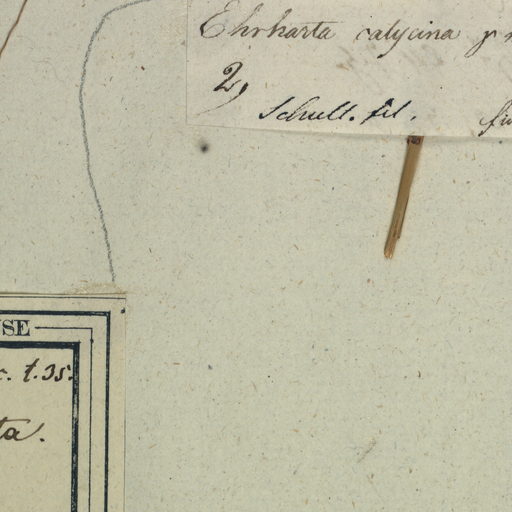 Ehrharta calycina γ
2,
Schult. fil.
USE
t.35.
ta.